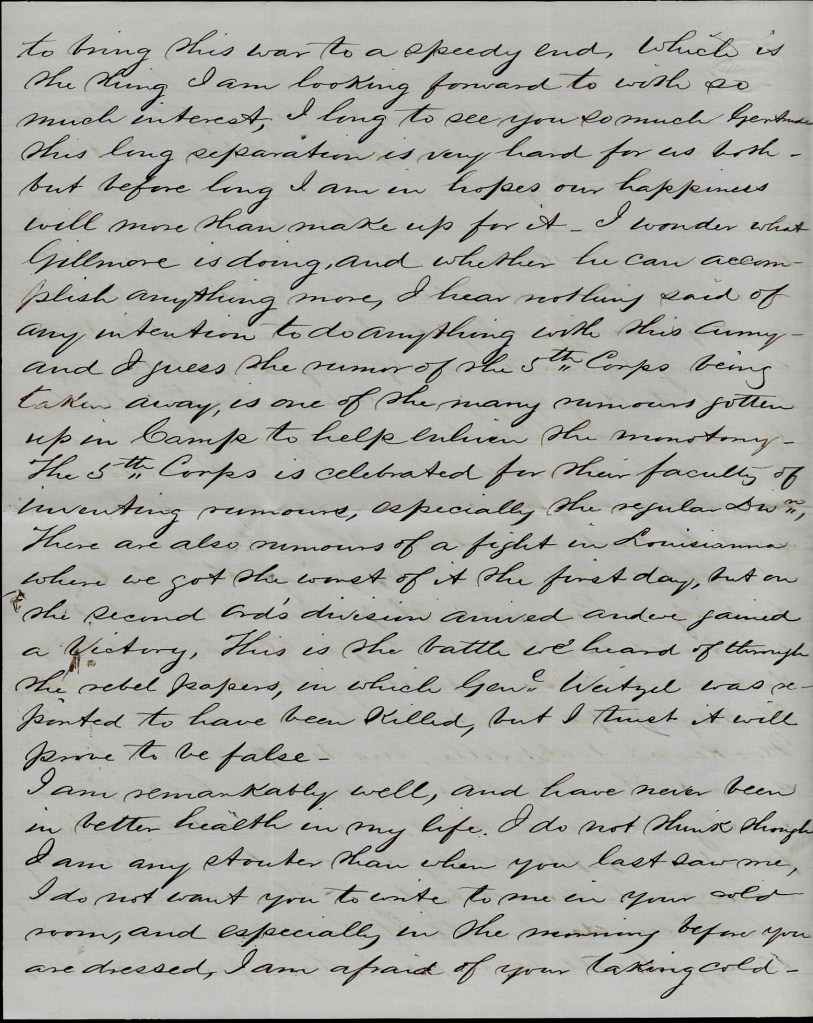 to bring this war to a speedy end, which is
the thing I am looking forward to with so
much interest, I long to see you so much Gertrude
this long separation is very hard for us both -
but before long I am in hopes our happiness
will more than make up for it - I wonder what
Gillmore is doing, and whether he can accom-
plish anything more, I hear nothing said of
any intention to do anything with this army -
and I guess the rumor of the 5th Corps being
taken away, is one of the many rumours gotten
up in Camp to help enliven the monotony -
The 5th Corps is celebrated for their faculty of
inventing rumours, especially the regular Divn,
There are also rumours of a fight in Louisianna
where we got the worst of it the first day, but on
the second Ord's division arived and we gained
a Victory, This is the battle we heard of through
the rebel papers, in which Genl Weitzel was re-
ported to have been Killed, but I trust it will
prove to be false -
I am remarkably well, and have never been
in better health in my life. I do not think though
I am any stouter than when you last saw me,
I do not want you to write to me in your cold
room, and especially in the morning before you
are dressed, I am afraid of your taking cold -